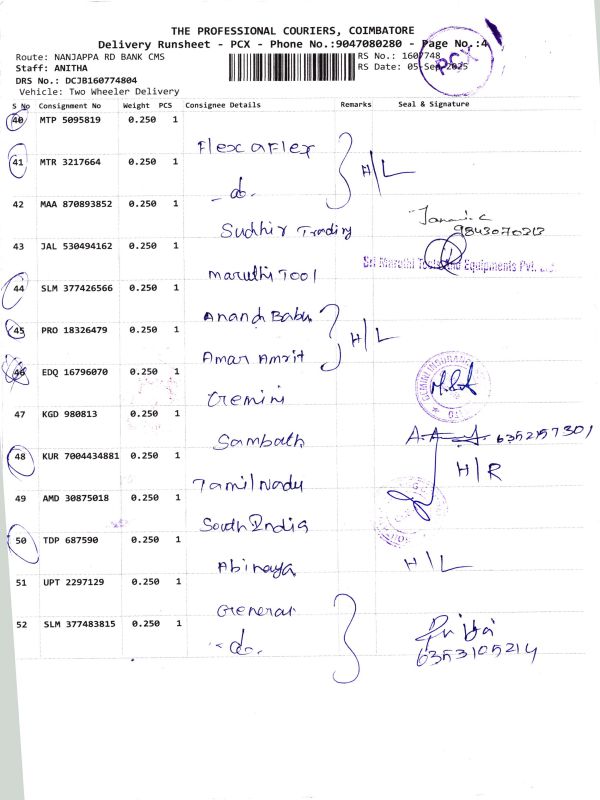 THE PROFESSIONAL COURIERS, COIMBATORE
Delivery Runsheet - PCX - Phone No.:9047080280 - Page No.:4
Route: NANJAPPA RD BANK CMS
RS No.: 1607748
Staff: ANITHA
RS Date: 05-Sep-2025
PCX
DRS No.: DCJB160774804
Vehicle: Two Wheeler Delivery
S No Consignment No Weight PCS Consignee Details Remarks Seal & Signature
40 MTP 5095819 0.250 1 Flex a Flex
41 MTR 3217664 0.250 1 - do. H/L
42 MAA 870893852 0.250 1 Sudhir Trading
9843070213
43 JAL 530494162 0.250 1 maruthi Tool
Sri Maruthi Tools and Equipments Pvt. Ltd.
44 SLM 377426566 0.250 1 Anand Babu
45 PRO 18326479 0.250 1 Amar Amrit H/L
46 EDQ 16796070 0.250 1 Gemini
GEMINI INSURANCE
47 KGD 980813 0.250 1 Sambath
6352157301
48 KUR 7004434881 0.250 1 Tamil Nadu H/R
49 AMD 30875018 0.250 1 South India
50 TDP 687590 0.250 1 Abinaya H/L
51 UPT 2297129 0.250 1 General
52 SLM 377483815 0.250 1 - do.
6353105214